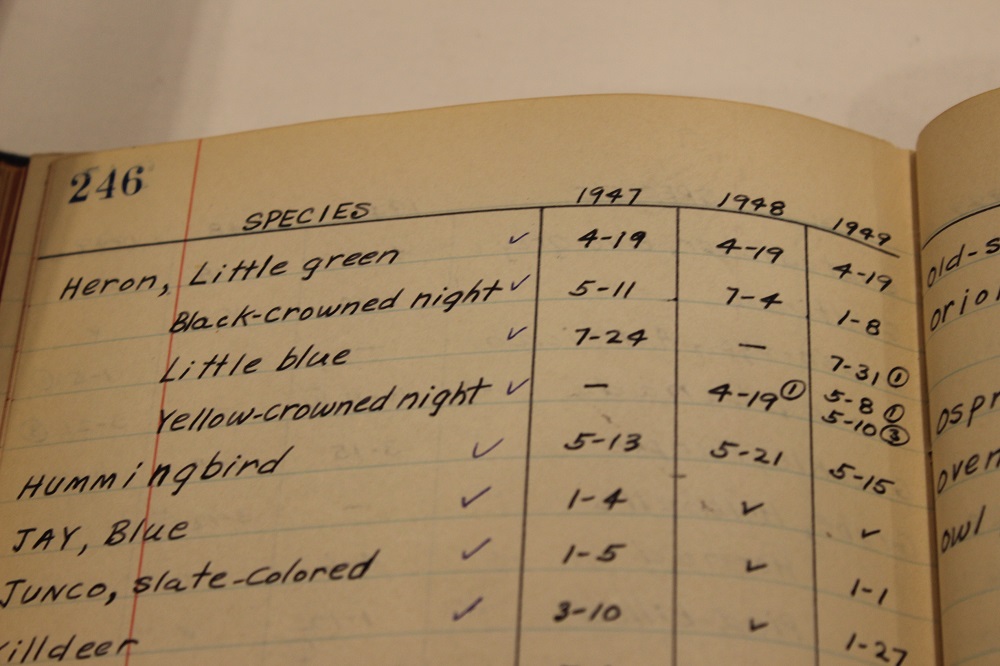 246
SPECIES 1947 1948 1949
Heron, Little green ✓ 4-19 4-19 4-19
Black-crowned night ✓ 5-11 7-4 1-8
Little blue ✓ 7-24 — 7-31 ①
Yellow-crowned night ✓ — 4-19 ① 5-8 ①
5-10 ③
Hummingbird ✓ 5-13 5-21 5-15
JAY, Blue ✓ 1-4 ✓ ✓
JUNCO, slate-colored ✓ 1-5 ✓ 1-1
Killdeer ✓ 3-10 ✓ 1-27
old-s
orio
ospr
oven
owl